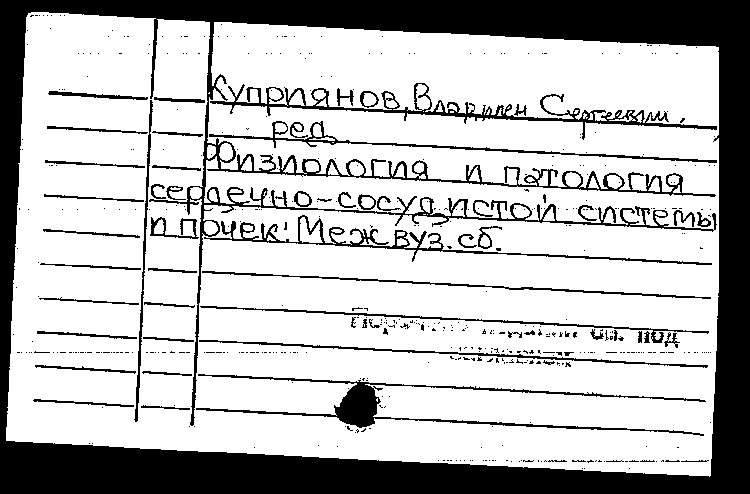 Куприянов, Владлен Сергеевич,
ред.
Физиология и патология
сердечно-сосудистой системы
и почек: Межвуз. сб.
см. под